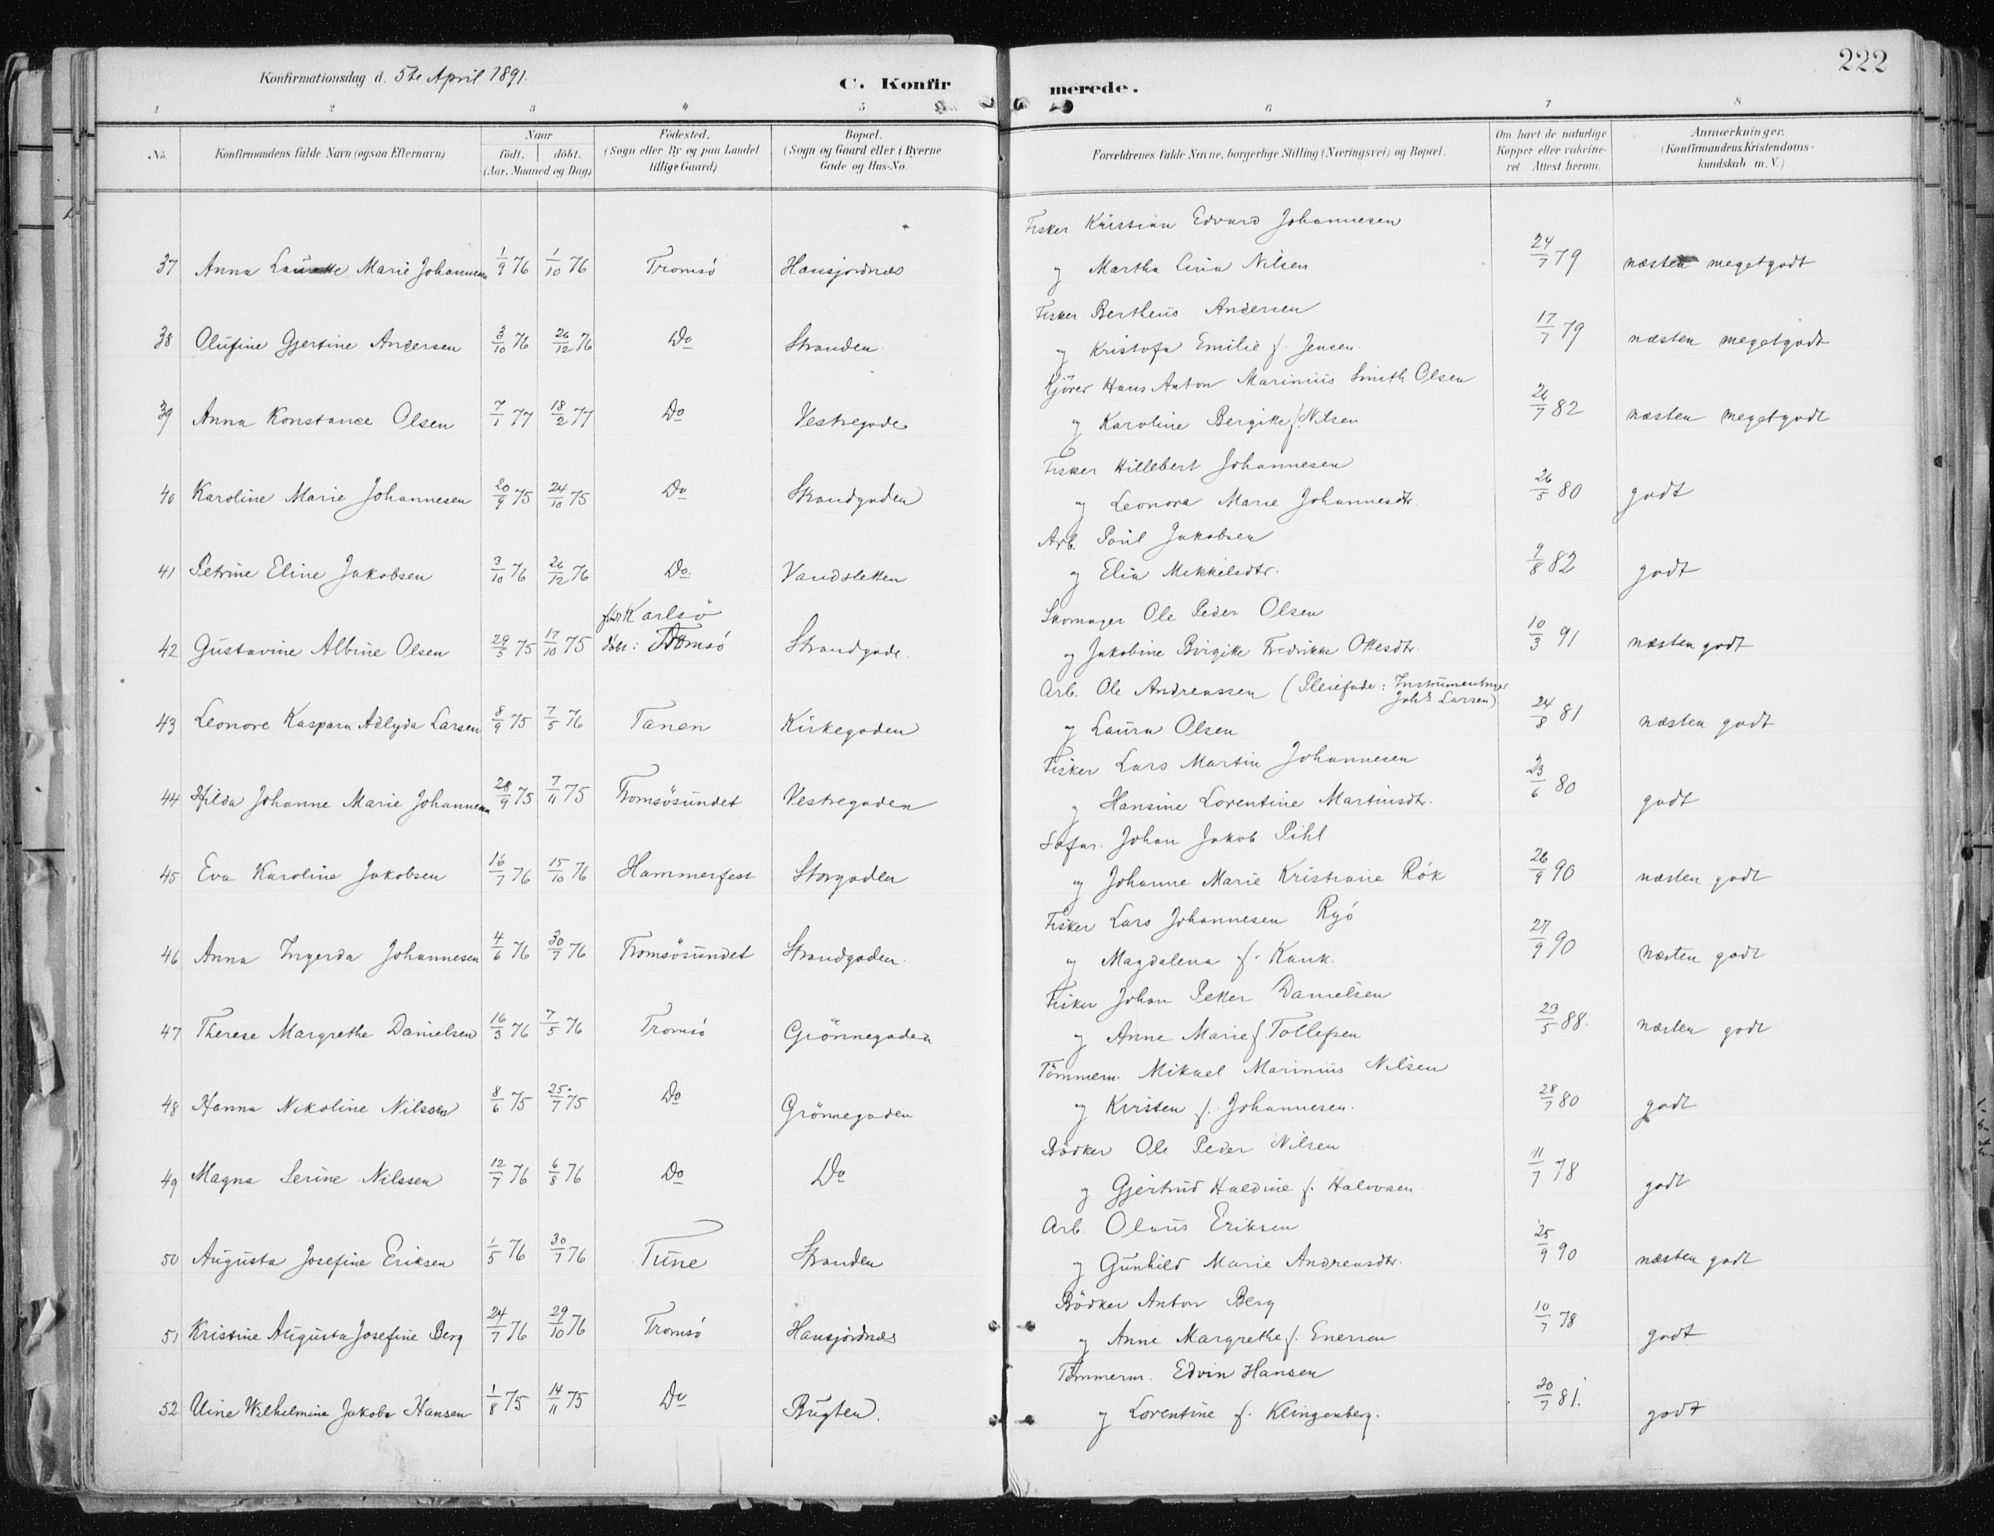 222
Konfirmationsdag d. 5te April 1891.
C. Konfirmerede.
1 2 3 4 5 6 7 8
No. Konfirmandens fulde Navn (ogsaa Efternavn) Naar født, døbt. (Aar, Maaned og Dag) Fødested. (Sogn eller By og paa Landet tillige Gaard) Bopæl. (Sogn og Gaard eller i Byerne Gade og Hus-No. Forældrenes fulde Navne, borgerlige Stilling (Næringsvei) og Bopæl. Om havt de naturlige Kopper eller vakcineret Attest herom. Anmærkninger. (Konfirmandens Kristendomskundskab m. V.)
Fisker Kristian Edvard Johannesen
37 Anna Laurette Marie Johannesen 1/9 76 1/10 76 Tromsö Hansjordnæs og Martha Lina Nilsen 24/7 79 næsten megetgodt
Fisker Bertheus Andersen
38 Olufine Gjertine Andersen 3/10 76 26/12 76 Do Stranden og Kristofa Emilie f. Jensen. 17/7 79 næsten megetgodt
Kjörer Hans Anton Marinius Smith Olsen
39 Anna Konstance Olsen 7/1 77 18/2 77 Do Vestregade og Karoline Bergitte f. Nilsen 26/7 82 næsten megetgodt
Fisker Hillebert Johannesen
40 Karoline Marie Johannesen 20/9 75 24/10 75 Do Strandgaden og Leonora Marie Johannesdtr. 26/5 80 godt
Arb. Paul Jakobsen
41 Petrine Eline Jakobsen 3/10 76 26/12 76 Do Vandsletten og Elia Mikkelsdtr. 9/8 82 godt
født Karlsö Skomager Ole Peder Olsen
42 Gustavine Albine Olsen 29/5 75 17/10 75 döbt: Tromsö Strandgade. og Jakobine Birgitte Fredrikke Ottesdtr. 10/3 91 næsten godt
Arb. Ole Andreassen (Pleiefader: Instrumentmager Johs Larsen)
43 Leonore Kaspara Adlyda Larsen 8/9 75 7/5 76 Tanen Kirkegaden og Laura Olsen 24/8 81 næsten godt
Fisker Lars Martin Johannesen
44 Hilda Johanne Marie Johannesen 28/9 75 7/11 75 Tromsösundet Vestregaden og Hansine Lorentine Martinsdtr. 23/6 80 godt
Söfar. Johan Jakob Pihl
45 Eva Karoline Jakobsen 16/7 76 15/10 76 Hammerfest Storgaden og Johanne Marie Kristiane Rök 26/9 90 næsten godt
Fisker Lars Johannesen Ryö
46 Anna Ingerda Johannesen 4/6 76 30/7 76 Tromsösundet Strandgaden. og Magdalena f. Kank. 27/9 90 næsten godt
Fisker Johan Petter Danielsen
47 Therese Margrethe Danielsen 16/3 76 7/5 76 Tromsö Grönnegaden og Anne Marie f. Tollefsen 23/5 88. næsten godt
Tömmerm. Mikael Marinius Nilsen
48 Hanna Nikoline Nilssen 8/6 75 25/7 75 Do Grönnegaden og Kirsten f. Johannesen. 28/7 80 godt
Bödker Ole Peder Nilsen
49 Magna Serine Nilssen 12/7 76 6/8 76 Do Do og Gjertrud Haldine f. Halvorsen 11/7 78 godt
Arb. Olaus Eriksen
50 Augusta Josefine Eriksen 1/5 76 30/7 76 Tune Stranden og Gunhild Marie Andreasdtr. 25/9 90 næsten godt
Bödker Anton Berg
51 Kristine Augusta Josefine Berg 24/7 76 29/10 76 Tromsö Hansjordnæs og Anne Margrethe f. Enersen 10/7 78 godt
Tömmerm. Edvin Hansen
52 Uine Wilhelmine Jakobe Hansen 1/8 75 14/11 75 Do Bugten. og Lorentine f. Klingenberg. 20/7 81. godt